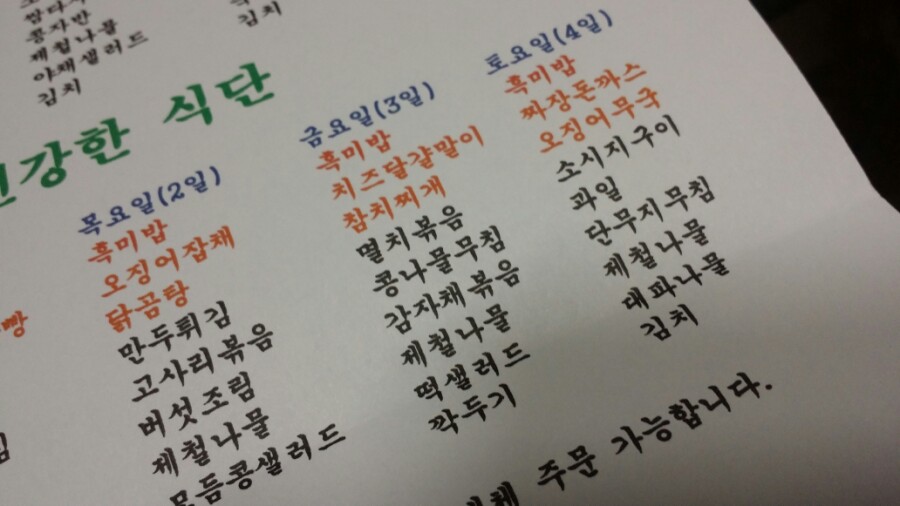 콩자반
제철나물
야채샐러드
김치
김치
강한 식단
목요일(2일)
흑미밥
오징어잡채
닭곰탕
만두튀김
고사리볶음
버섯조림
제철나물
모듬콩샐러드
금요일(3일)
흑미밥
치즈달걀말이
참치찌개
멸치볶음
콩나물무침
감자채볶음
제철나물
떡샐러드
깍두기
토요일(4일)
흑미밥
짜장돈까스
오징어무국
소시지구이
과일
단무지무침
제철나물
대파나물
김치
빵
주문 가능합니다.